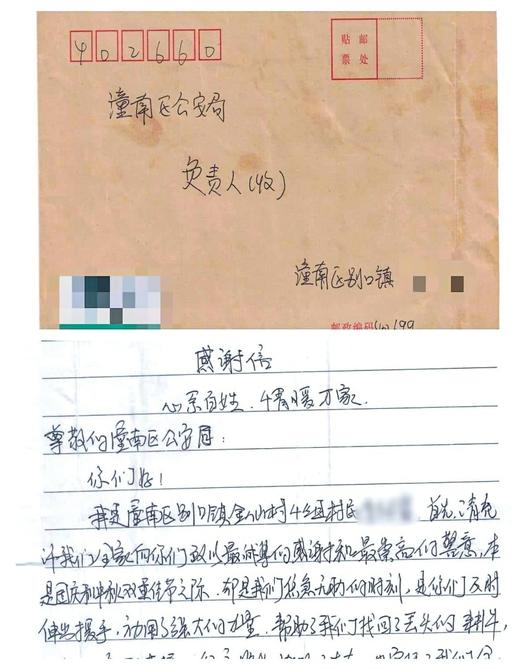 402660
贴 邮
票 处
潼南区公安局
负责人(收)
潼南区别口镇
邮政编码
感谢信
心系百姓,情暖万家.
尊敬的潼南区公安局:
你们好!
我是潼南区别口镇金山村4组村民 首先,请允
许我们全家向你们致以最诚挚的感谢和最崇高的敬意,本
是国庆和中秋双重佳节之际,却是我们焦急无助的时刻,是你们及时
伸出援手,动用了强大的力量,帮助了我们找回了丢失的